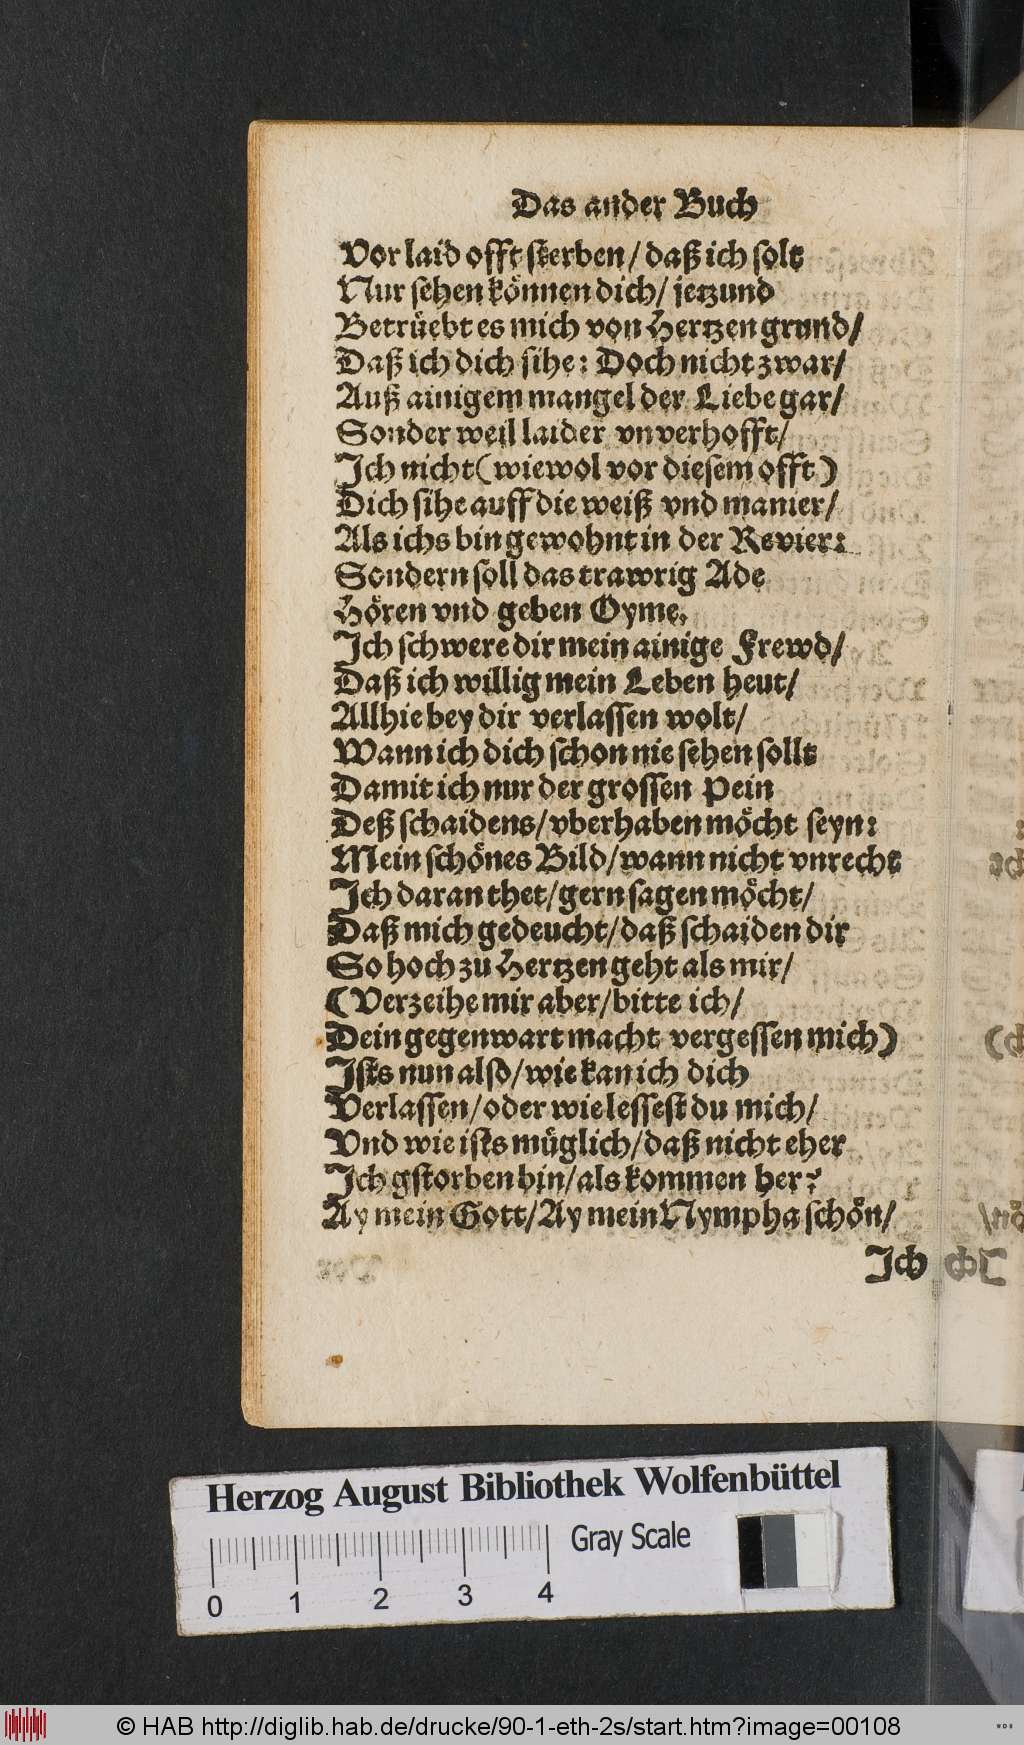 Das ander Buch
Vor laid offt sterben / daß ich solt
Nur sehen können dich / jetzund
Betrüebt es mich von Hertzen grund /
Daß ich dich sihe: Doch nicht zwar /
Auß ainigem mangel der Liebe gar /
Sonder weil laider vnverhofft /
Ich nicht (wiewol vor diesem offt)
Dich sihe auff die weiß vnd manier /
Als ichs bin gewohnt in der Revier:
Sondern soll das trawrig Ade
Hören vnd geben Oyme,
Ich schwere dir mein ainige Frewd /
Daß ich willig mein Leben heut /
Allhie bey dir verlassen wolt /
Wann ich dich schon nie sehen sollt
Damit ich nur der grossen Pein
Deß schaidens / vberhaben möcht seyn:
Mein schönes Bild / wann nicht vnrecht
Ich daran thet / gern sagen möcht /
Daß mich gedeucht / daß schaiden dir
So hoch zu Hertzen geht als mir /
(Verzeihe mir aber / bitte ich /
Dein gegenwart macht vergessen mich)
Ists nun also / wie kan ich dich
Verlassen / oder wie lessest du mich /
Vnd wie ists müglich / daß nicht eher
Ich gstorben bin / als kommen her?
Ay mein Gott / Ay mein Nympha schön /
Ich
Herzog August Bibliothek Wolfenbüttel
Gray Scale
0 1 2 3 4
© HAB http://diglib.hab.de/drucke/90-1-eth-2s/start.htm?image=00108